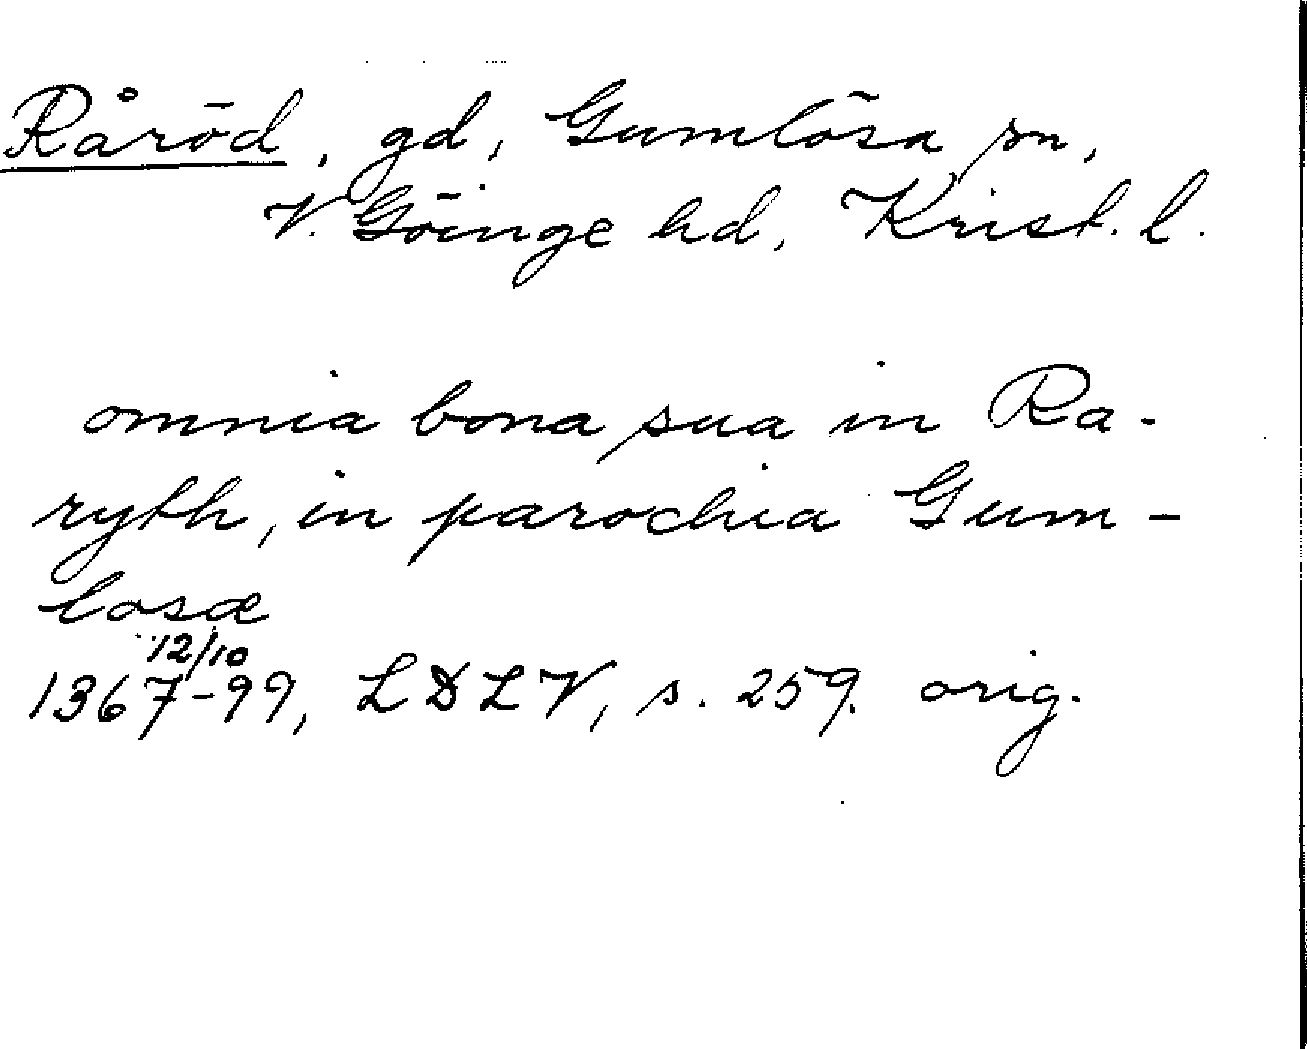 Råröd, gd, Gumlösa sn,
V. Göinge hd, Krist. l.
omnia bona sua in Ra-
ryth, in parochia Gum-
losæ
12/10
1367-99, LDLV, s. 259. orig.